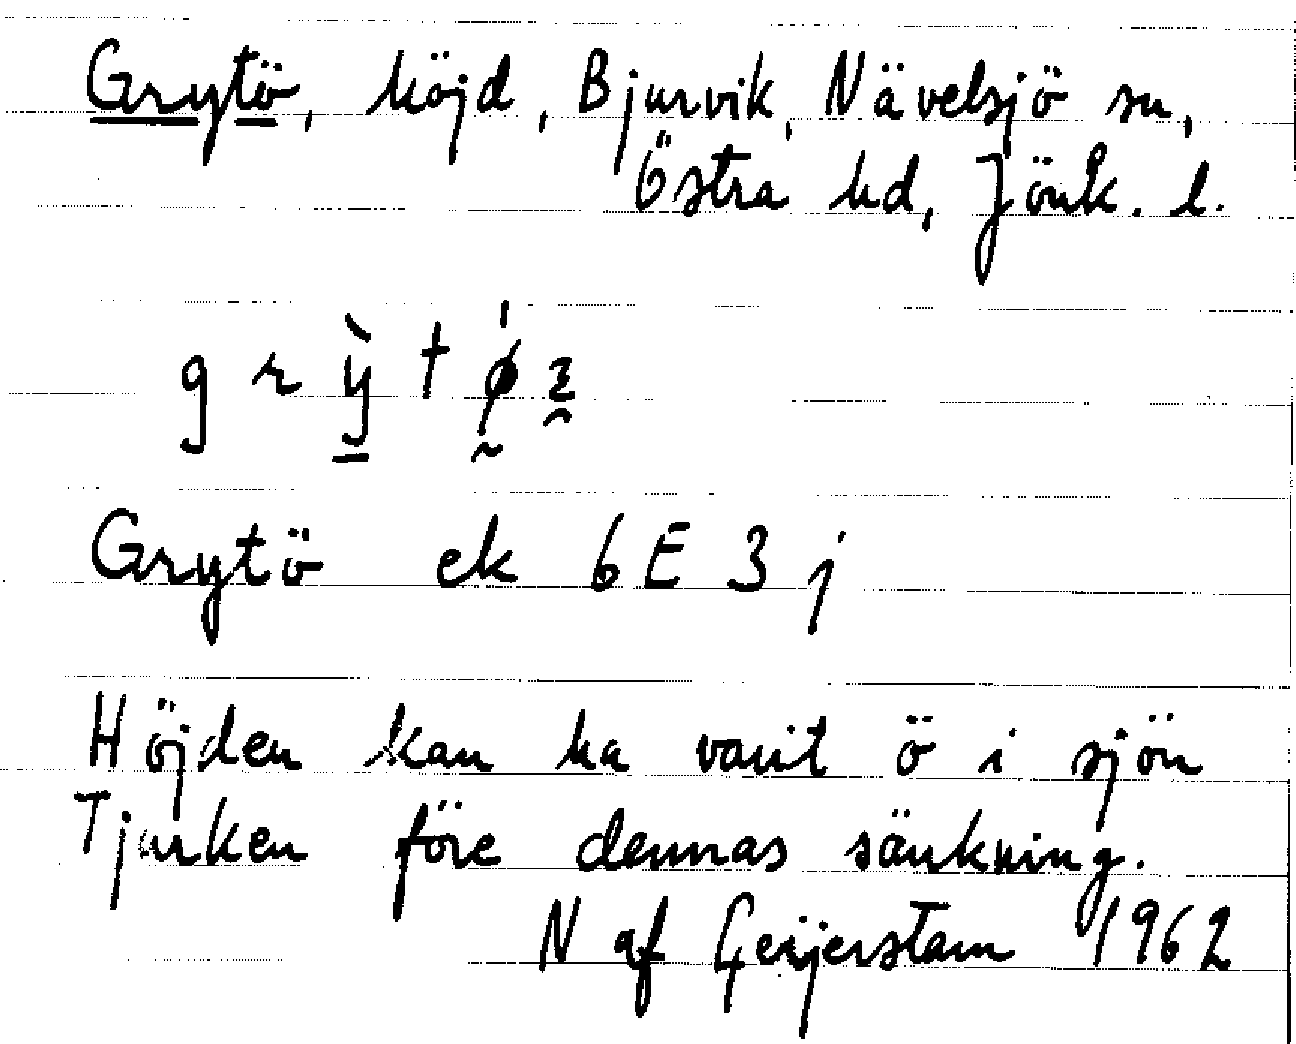 Grytö, höjd, Bjurvik, Nävelsjö sn,
Östra hd, Jönk. l.
Grytö ek 6E 3j
Höjden kan ha varit ö i sjön
Tjurken före dennas sänkning.
N af Geijerstam 1962